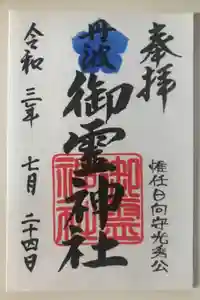 奉拝
惟任日向守光秀公
丹波
御霊神社
令和三年七月二十四日